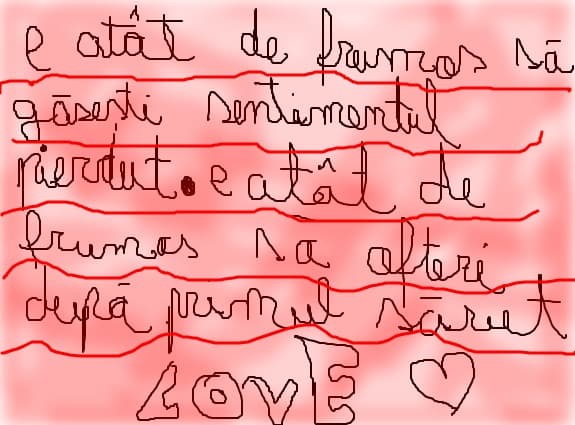 e atât de frumos să
găsesti sentimentul
pierdut. e atât de
frumos sa oferi
după primul sărut
LOVE ♡